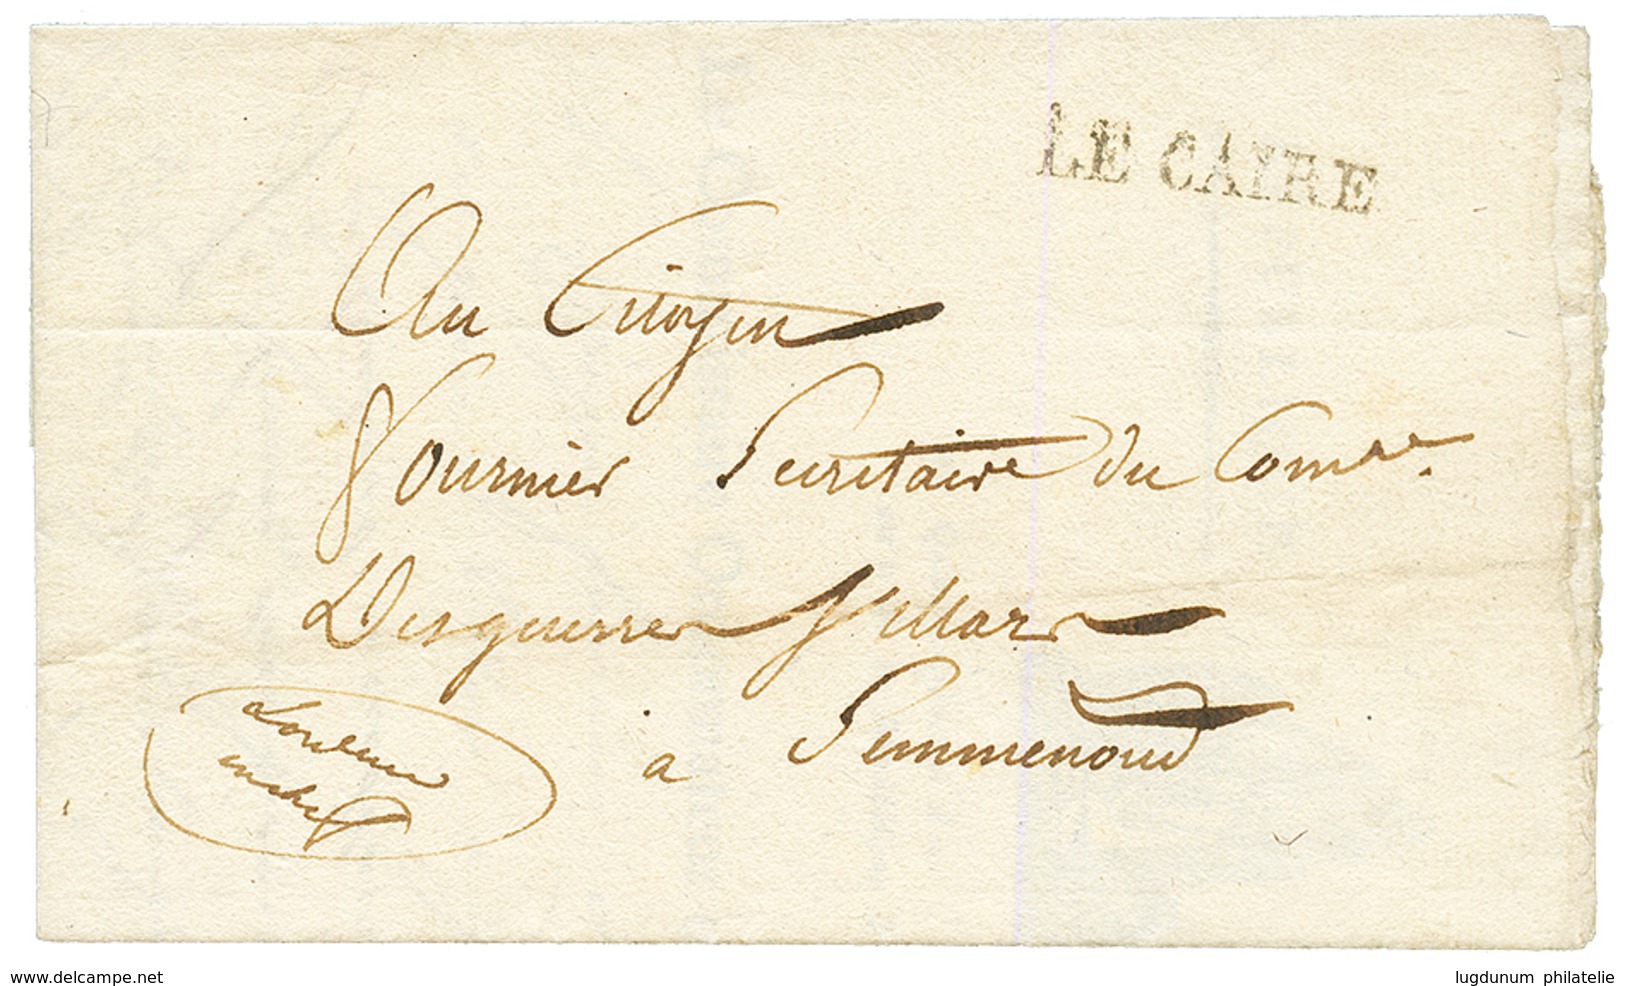 LE CAIRE
Au Citoyen
Fournier Secretaire du Comre.
Desguerre Villars
à Semmenoud
en chef
www.delcampe.net
lugdunum philatelie